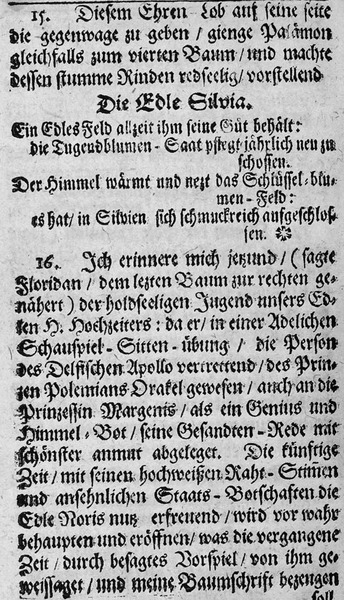 15. Diesem Ehren Lob auf seine seite
die gegenwage zu geben / gienge Palämon
gleichfalls zum vierten Baum / und machte
dessen stumme Rinden redseelig / vorstellend
Die Edle Silvia.
Ein Edles Feld allzeit ihm seine Güt behält:
die Tugendblumen-Saat pflegt jährlich neu zu
schossen.
Der Himmel wärmt und nezt das Schlüssel-blu-
men-Feld:
es hat / in Silvien sich schmuckreich aufgeschlos-
sen.
16. Ich erinnere mich jezund / (sagte
Floridan / dem lezten Baum zur rechten ge-
nähert) der holdseeligen Jugend unsers Ed-
len H. Hochzeiters: da er / in einer Adelichen
Schauspiel-Sitten-übung / die Person
des Delfischen Apollo vertrettend / des Prin-
zen Polemians Orakel gewesen / auch an die
Prinzessin Margenis / als ein Genius und
Himmel-Bot / seine Gesandten-Rede mit
schönster anmut abgeleget. Die künftige
Zeit / mit seinen hochweißen Raht-Stim̃en
und ansehnlichen Staats-Botschaften die
Edle Noris nutz erfreuend / wird vor wahr
behaupten und eröffnen / was die vergangene
Zeit / durch besagtes Vorspiel / von ihm ge-
weissaget / und meine Baumschrift bezeugen
soll.